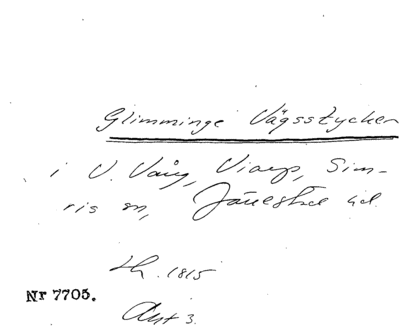 Glimminge Vägsstycken
i V. Vång, Viarp, Sim-
ris sn, Järrestad hd.
Lh. 1815
Nr 7705.
Akt 3.